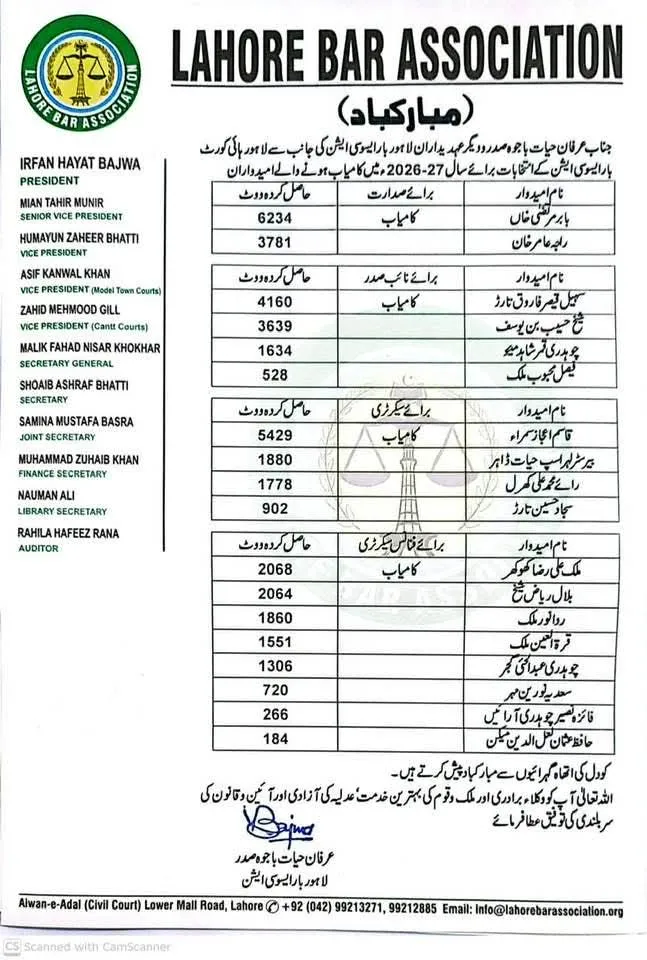 LAHORE BAR ASSOCIATION
LAHORE BAR ASSOCIATION
(مبارکباد)
IRFAN HAYAT BAJWA
PRESIDENT
MIAN TAHIR MUNIR
SENIOR VICE PRESIDENT
HUMAYUN ZAHEER BHATTI
VICE PRESIDENT
ASIF KANWAL KHAN
VICE PRESIDENT (Model Town Courts)
ZAHID MEHMOOD GILL
VICE PRESIDENT (Cantt Courts)
MALIK FAHAD NISAR KHOKHAR
SECRETARY GENERAL
SHOAIB ASHRAF BHATTI
SECRETARY
SAMINA MUSTAFA BASRA
JOINT SECRETARY
MUHAMMAD ZUHAIB KHAN
FINANCE SECRETARY
NAUMAN ALI
LIBRARY SECRETARY
RAHILA HAFEEZ RANA
AUDITOR
جناب عرفان حیات باجوہ صدر و دیگر عہدیداران لاہور بار ایسوسی ایشن کی جانب سے لاہور ہائی کورٹ
بار ایسوسی ایشن کے انتخابات برائے سال 27-2026ء میں کامیاب ہونے والے امیدواران
نام امیدوار برائے صدارت حاصل کردہ ووٹ
بابر مرتضیٰ خاں کامیاب 6234
راجہ عامر خان 3781
نام امیدوار برائے نائب صدر حاصل کردہ ووٹ
سہیل قیصر فاروق تارڑ کامیاب 4160
شیخ حسیب بن یوسف 3639
چوہدری قمر شاہد میو 1634
فیصل محبوب ملک 528
نام امیدوار برائے سیکرٹری حاصل کردہ ووٹ
قاسم اعجاز سمراء کامیاب 5429
بیرسٹر لہراسپ حیات ڈاہر 1880
رائے محمد علی کھرل 1778
سجاد حسین تارڑ 902
نام امیدوار برائے فنانس سیکرٹری حاصل کردہ ووٹ
ملک علی رضا کھوکھر کامیاب 2068
بلال ریاض شیخ 2064
روا نور ملک 1860
قرۃ العین ملک 1551
چوہدری عبدالحئی گجر 1306
سعدیہ نورین مہر 720
فائزہ نصیر چوہدری آرائیں 266
حافظ عثمان لعل الدین میکن 184
کو دل کی اتھاہ گہرائیوں سے مبارکباد پیش کرتے ہیں۔
اللہ تعالیٰ آپ کو وکلاء برادری اور ملک و قوم کی بہترین خدمت، عدلیہ کی آزادی اور آئین و قانون کی
سربلندی کی توفیق عطا فرمائے
Bajwa
عرفان حیات باجوہ صدر
لاہور بار ایسوسی ایشن
Aiwan-e-Adal (Civil Court) Lower Mall Road, Lahore ✆ +92 (042) 99213271, 99212885 Email: Info@lahorebarassociation.org
CS Scanned with CamScanner